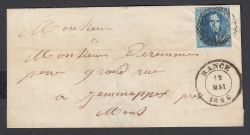 Monsieur
Monsieur Derömme
pour grand rue
a Jemmappes près
Mons
RANCE
12
MAI
1856